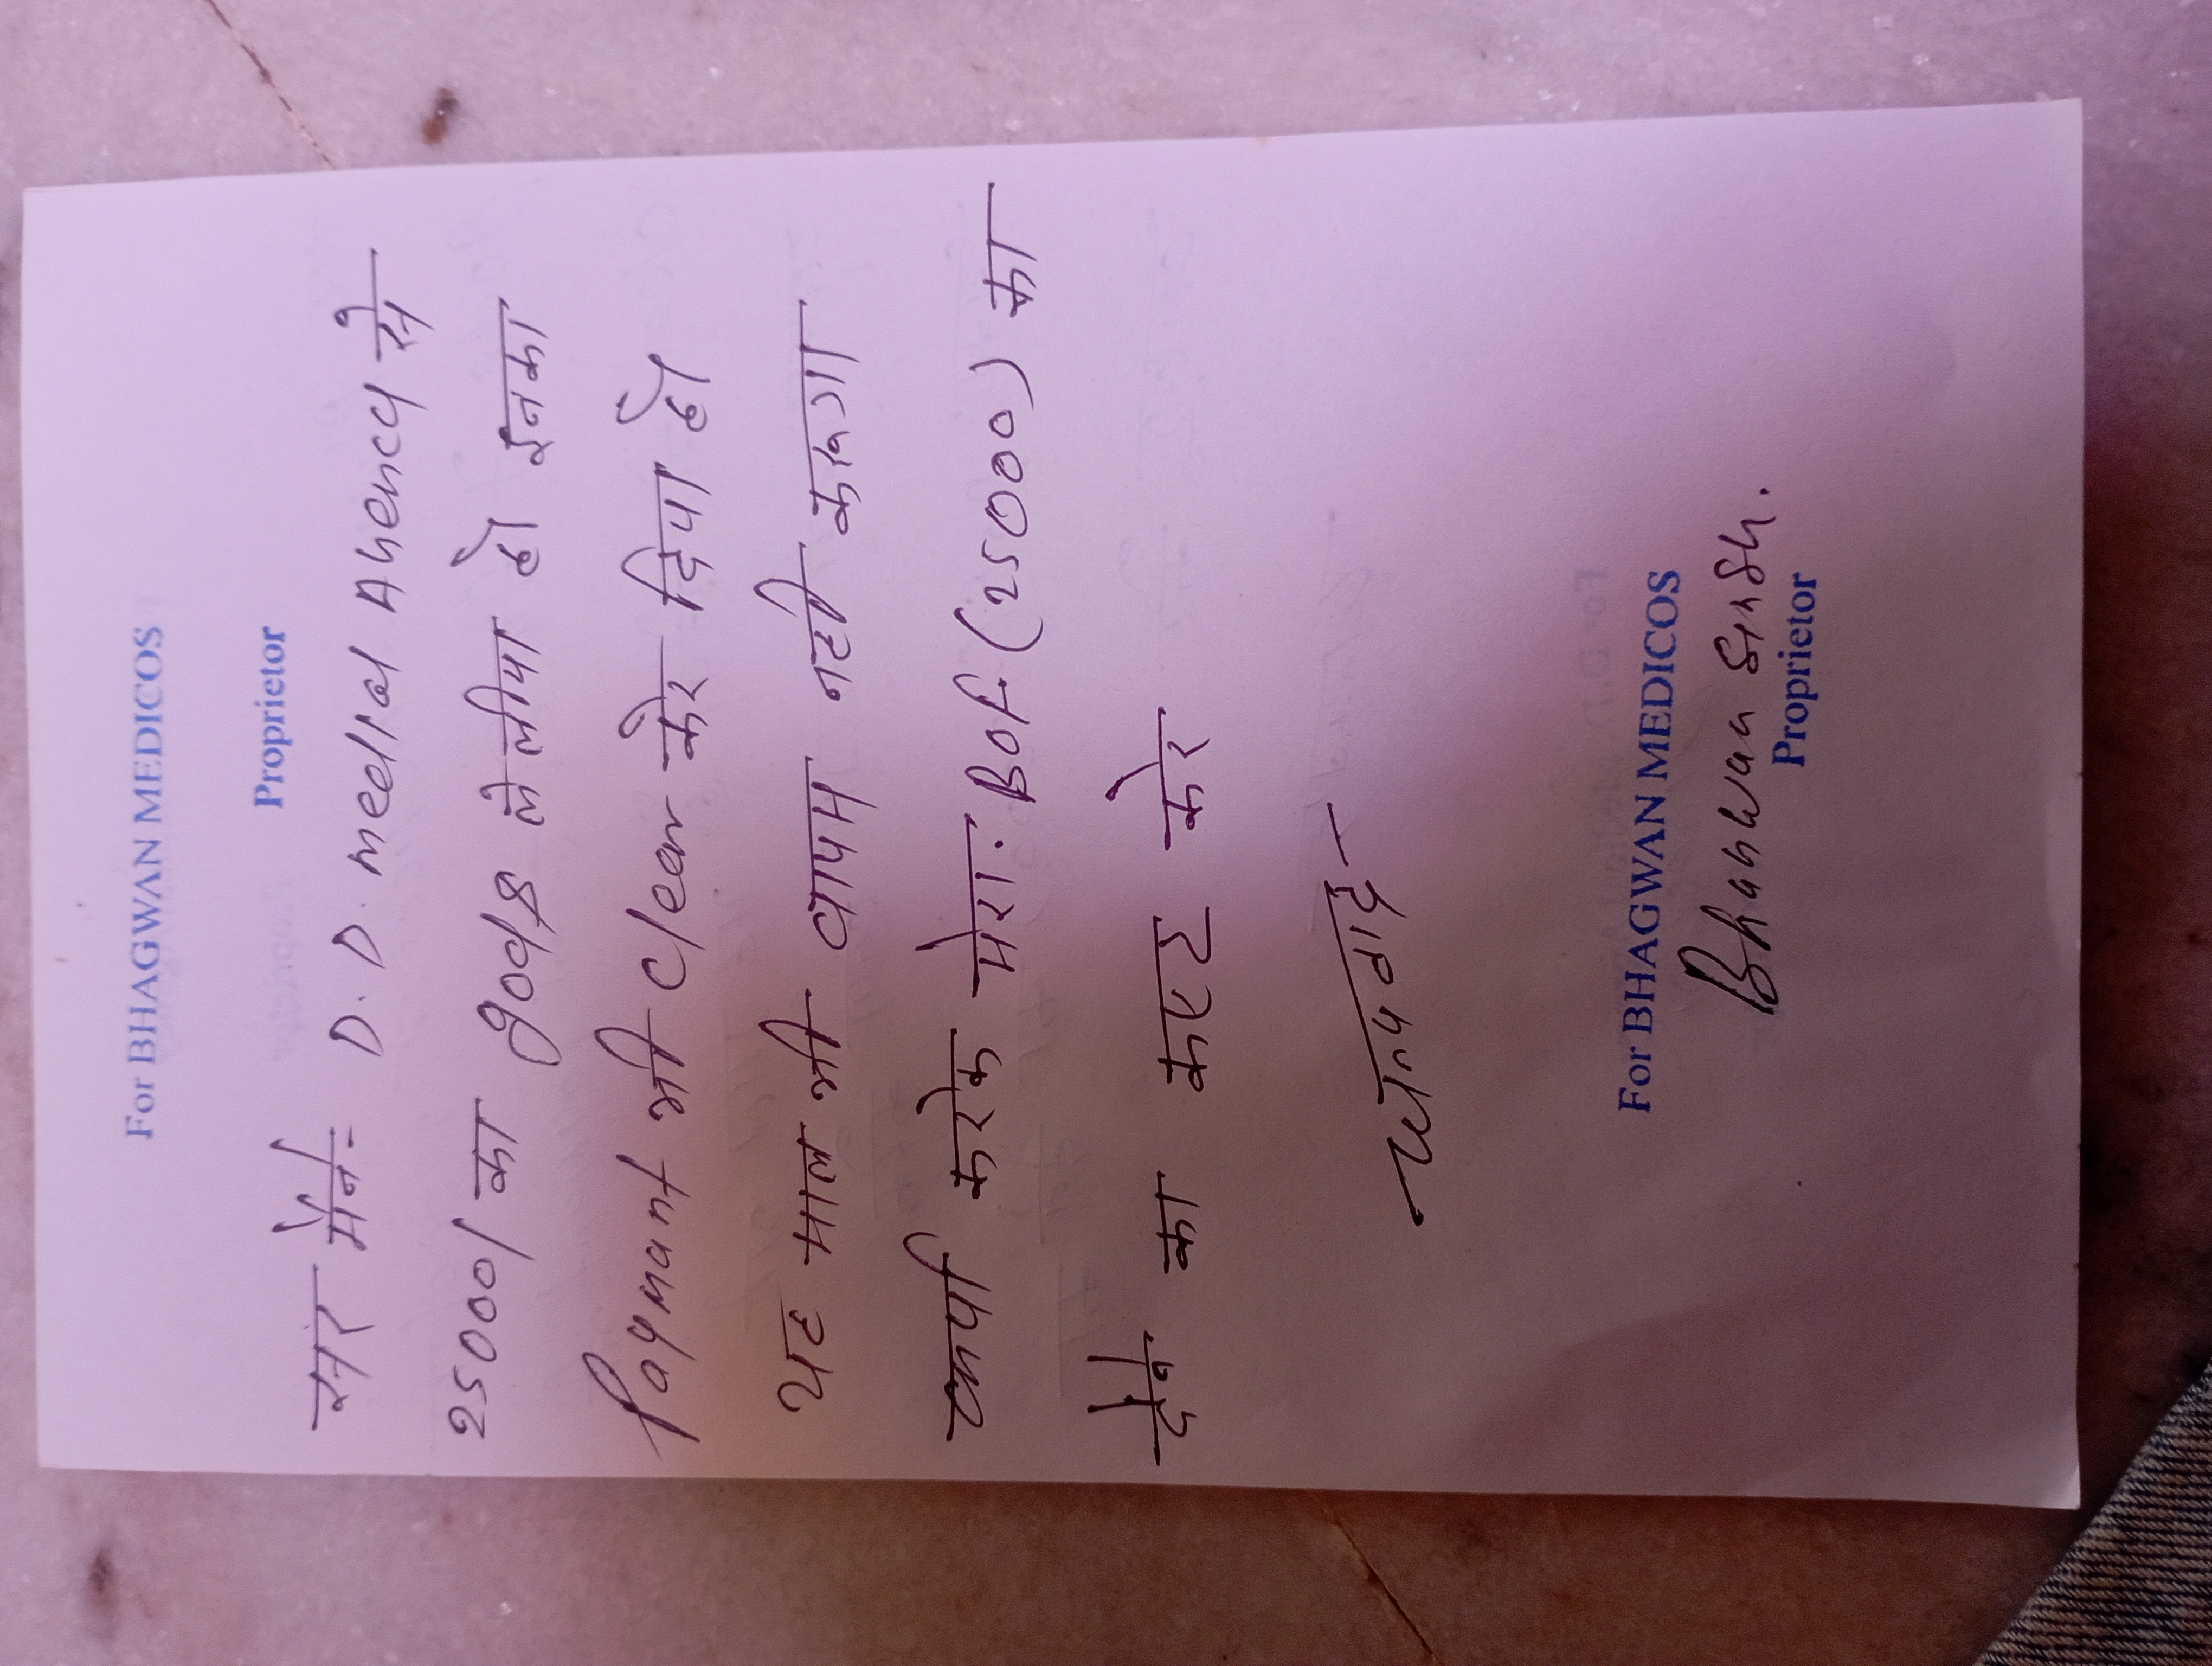 For BHAGWAN MEDICOS
Proprietor
सर मैने- D. D. medical Agency से
25000/ का goods ले लीया है इनका
Paymant भी Clear कर दिया है
यह माल भी वापस नही करूगा
कर्पा करके मेरा. BOF. (25000) का
का कष्ट करे
धन्यवाद
For BHAGWAN MEDICOS
Bhagwan Singh.
Proprietor